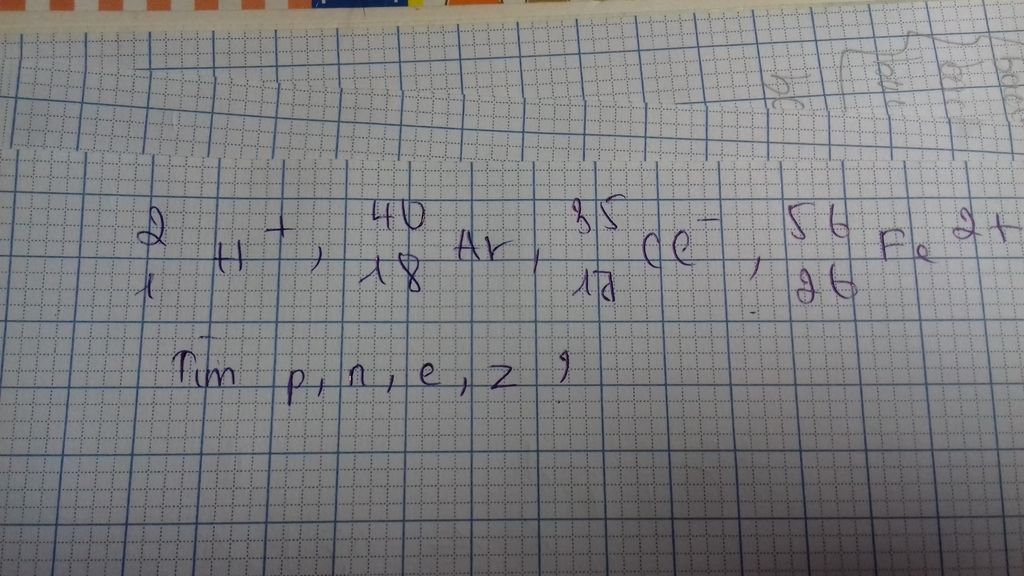 ²₁H⁺, ⁴⁰₁₈Ar, ³⁵₁₇Cl⁻, ⁵⁶₂₆Fe²⁺
Tìm p, n, e, z ?